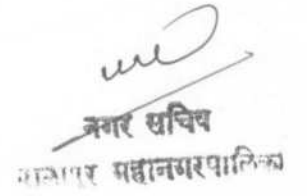 नगर सचिव
महानगरपालिका